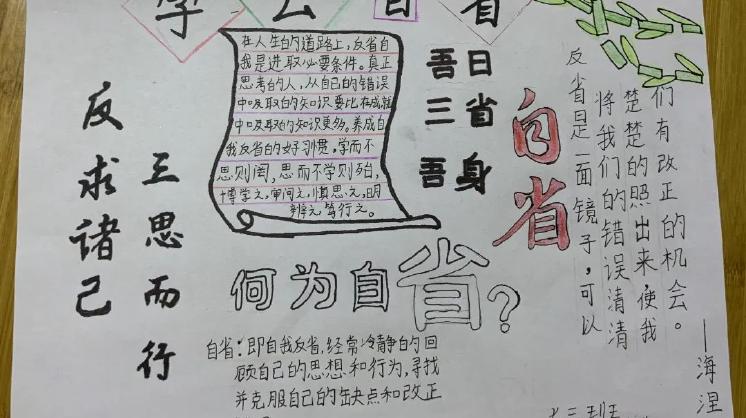 学会自省
在人生的道路上，反省自
我是进取必要条件。真正
思考的人，从自己的错误
中吸取的知识要比在成就
中吸取的知识更多。养成自
我反省的好习惯，学而不
思则罔，思而不学则殆，
博学之，审问之，慎思之，明
辨之，笃行之。
吾日
三省
吾身
自省
反求诸己
三思而行
反省是一面镜子，可以
将我们的错误清清
楚楚的照出来，使我
们有改正的机会。
——海涅
何为自省？
自省：即自我反省，经常冷静的回
顾自己的思想和行为，寻找
并克服自己的缺点和改正